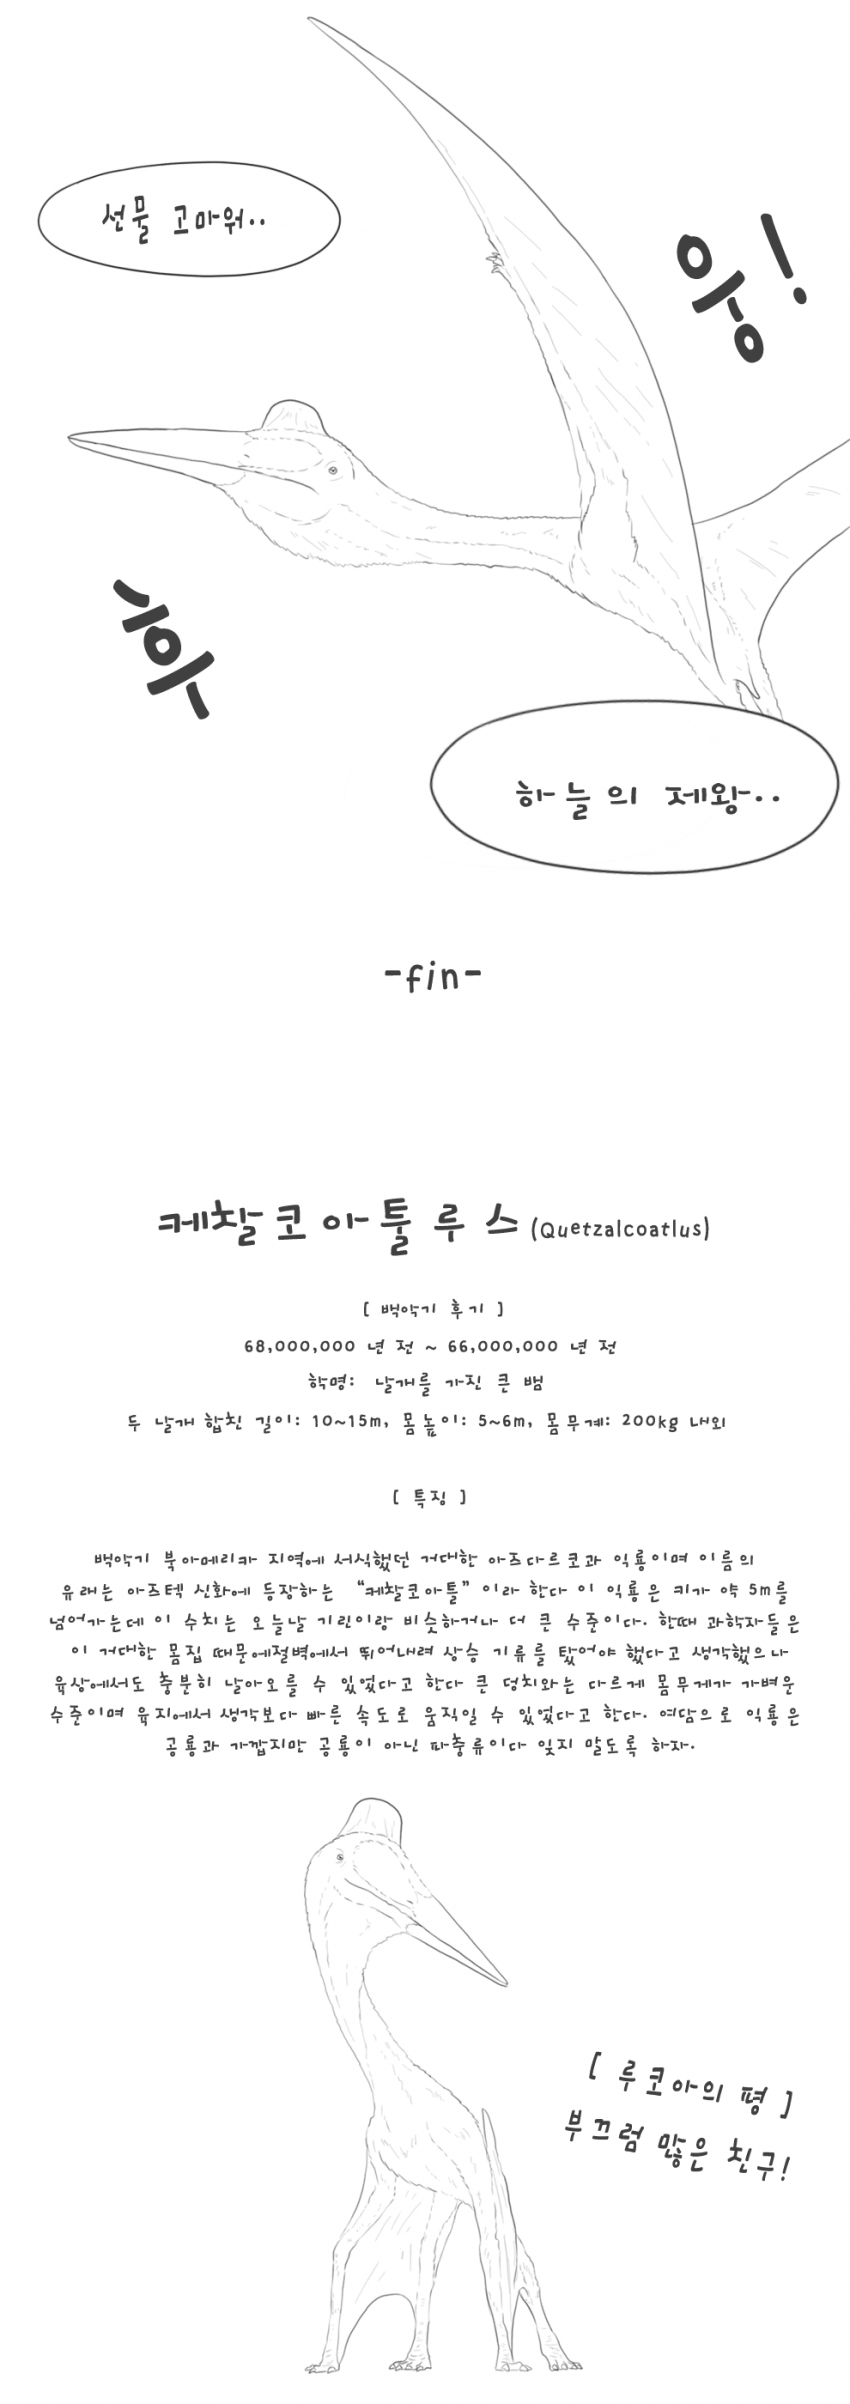 선물 고마워..
앙!
끼아
하늘의 제왕..
-fin-
케찰코아툴루스(Quetzalcoatlus)
[ 백악기 후기 ]
68,000,000 년 전 ~ 66,000,000 년 전
학명: 날개를 가진 큰 뱀
두 날개 합친 길이: 10~15m, 몸높이: 5~6m, 몸무게: 200kg 내외
[ 특징 ]
백악기 북아메리카 지역에 서식했던 거대한 아즈다르코과 익룡이며 이름의
유래는 아즈텍 신화에 등장하는 “케찰코아틀”이라 한다 이 익룡은 키가 약 5m를
넘어가는데 이 수치는 오늘날 기린이랑 비슷하거나 더 큰 수준이다. 한때 과학자들은
이 거대한 몸집 때문에절벽에서 뛰어내려 상승 기류를 탔어야 했다고 생각했으나
육상에서도 충분히 날아오를 수 있었다고 한다 큰 덩치와는 다르게 몸무게가 가벼운
수준이며 육지에서 생각보다 빠른 속도로 움직일 수 있었다고 한다. 여담으로 익룡은
공룡과 가깝지만 공룡이 아닌 파충류이다 잊지 말도록 하자.
[ 루코아의 평 ]
부끄럼 많은 친구!